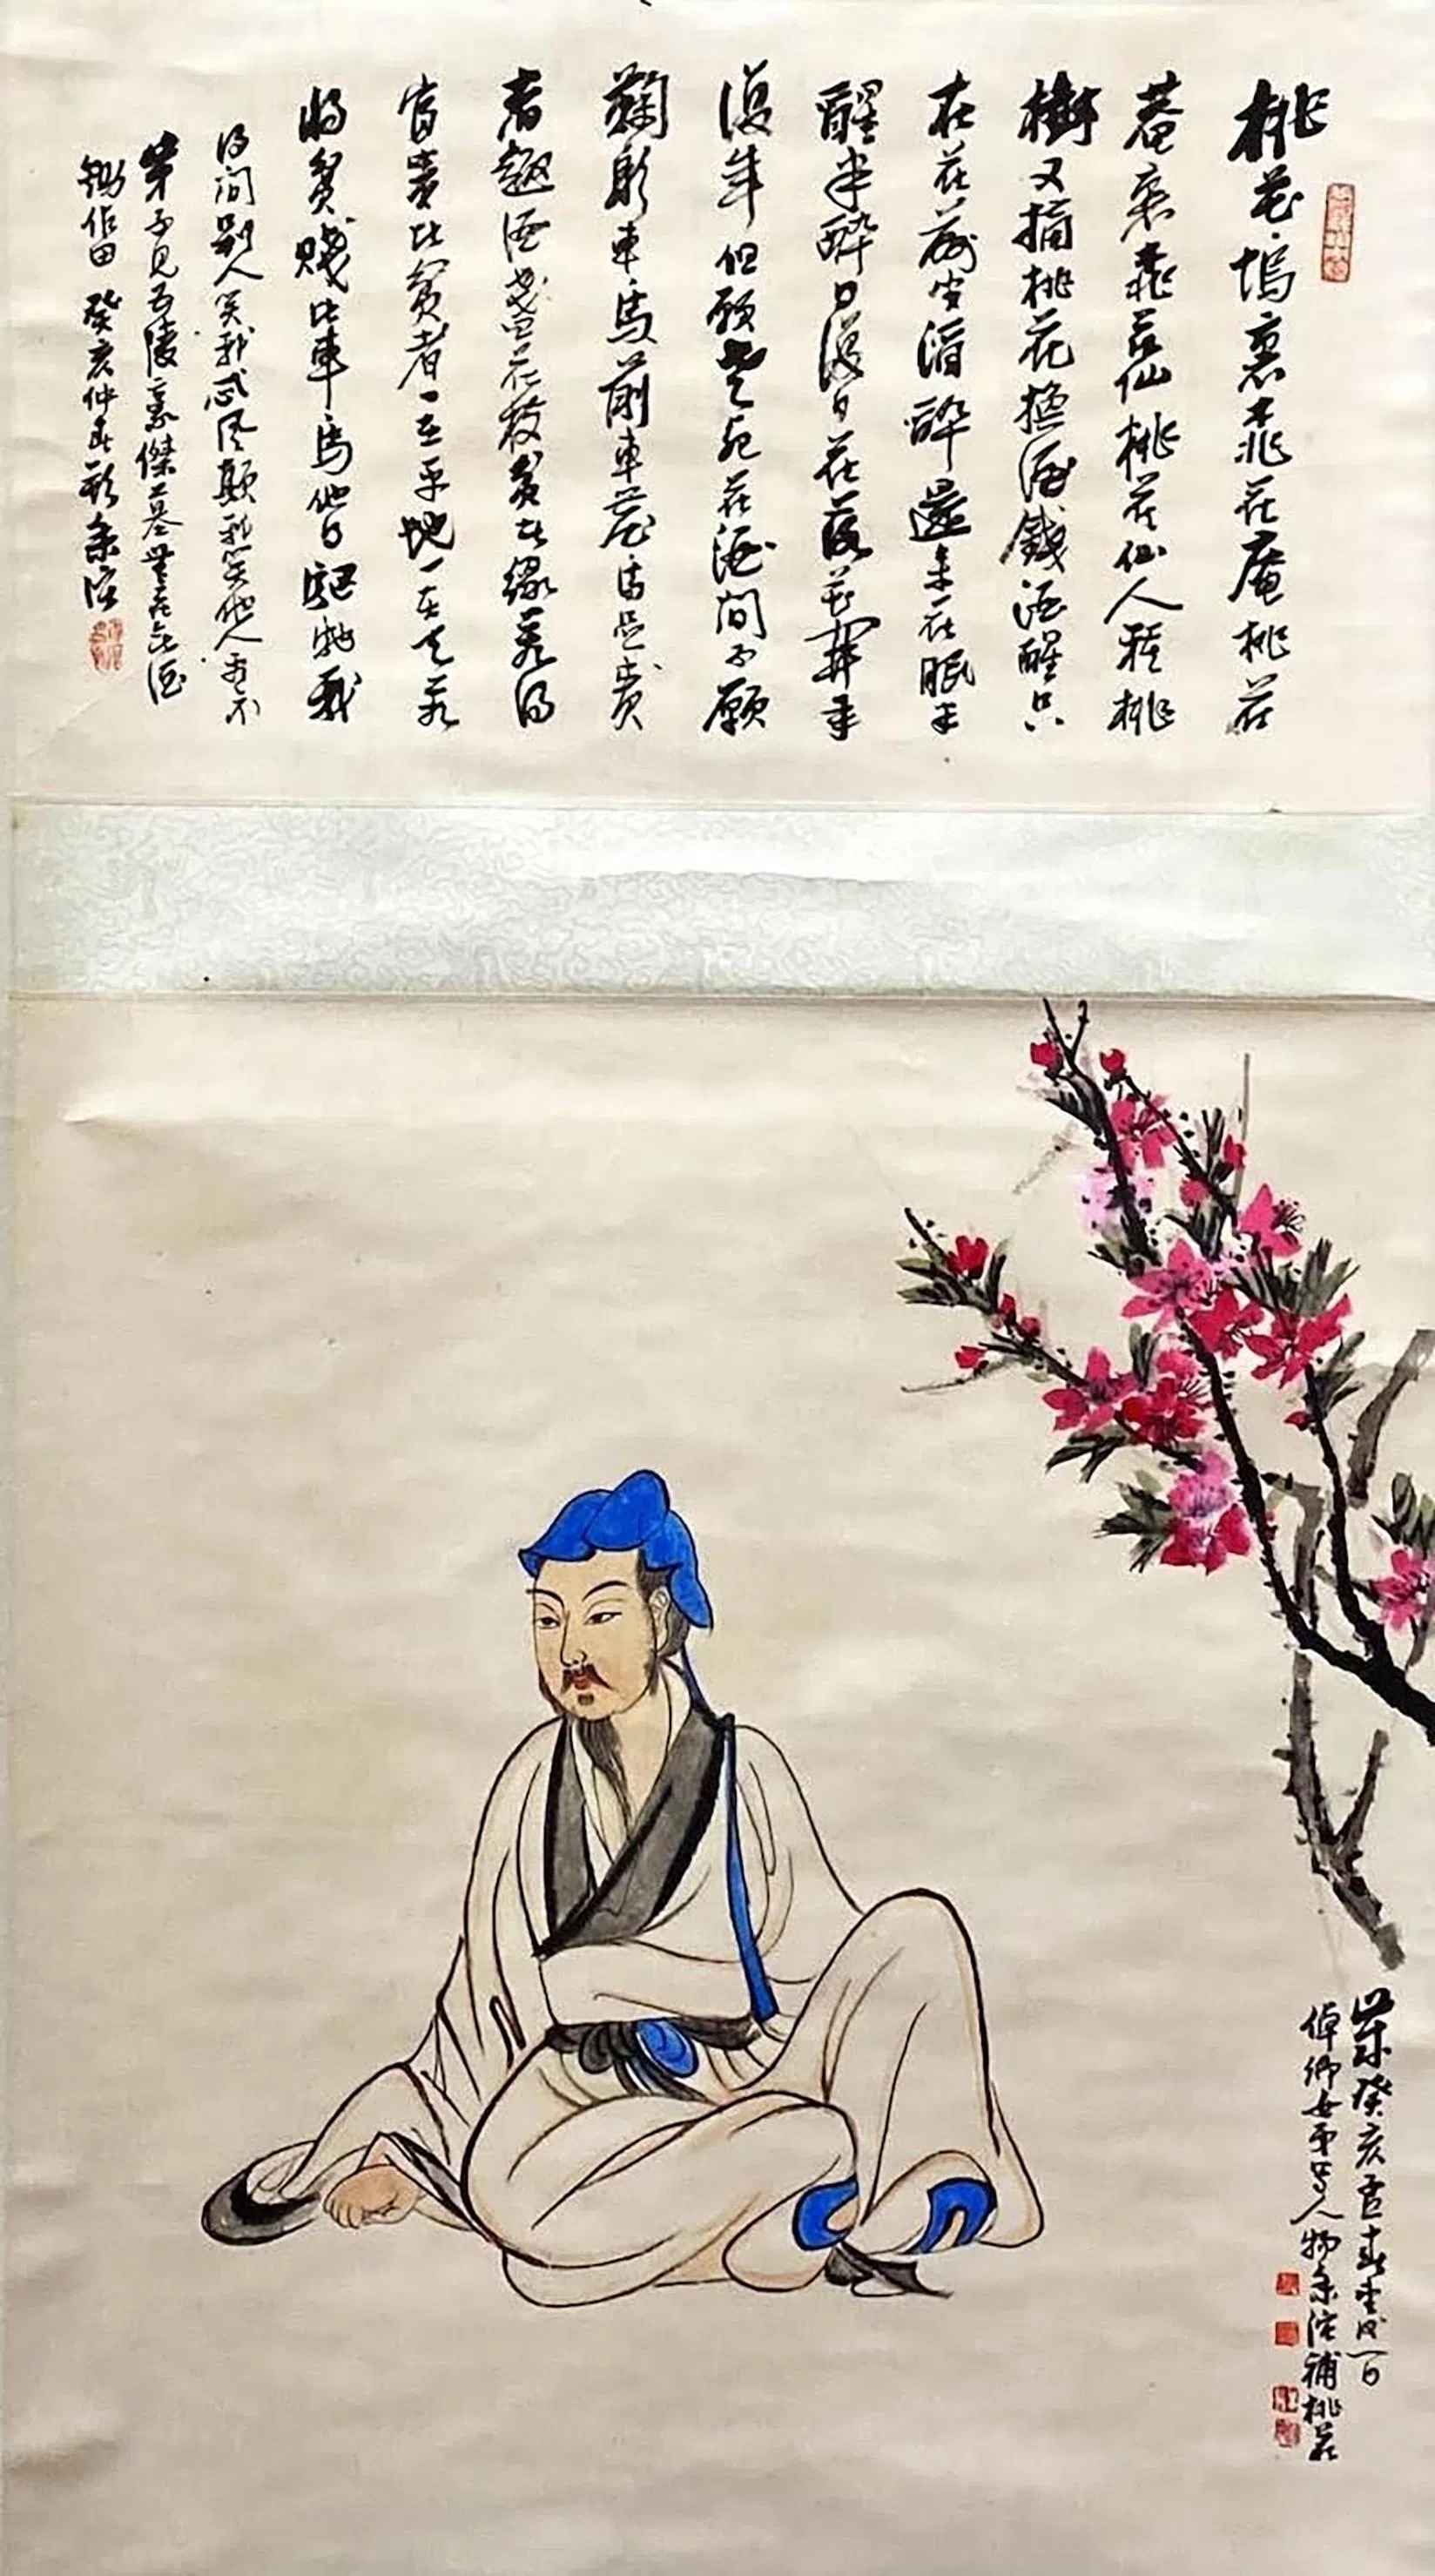 桃花塢裏桃花庵桃花
菴裏桃花仙桃花仙人種桃
樹又摘桃花換酒錢酒醒只
在花前坐酒醉還來花眠半
醒半醉日復日花落花開年
復年但願老死花酒間不願
鞠躬車馬前車塵馬足貴
者趣酒盞花枝貧者緣若將
富貴比貧者一在平地一在天若
將貧賤比車馬他得驅馳我
得閒別人笑我忒風顛我笑他人看不
穿不見五陵豪傑墓無花無酒
鋤作田 癸亥仲春
歲癸亥
倬卿女弟寫人物余沱補桃花